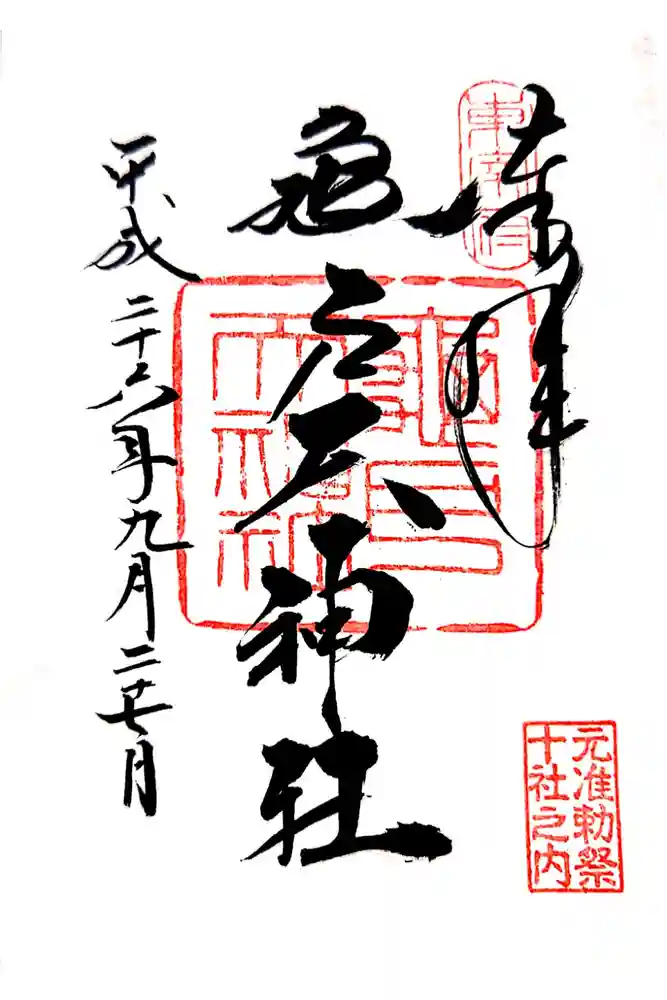 奉拝
東宰府
亀戸天神社
龜戸
天神社
平成二十六年九月二十七日
元准勅祭
十社之内